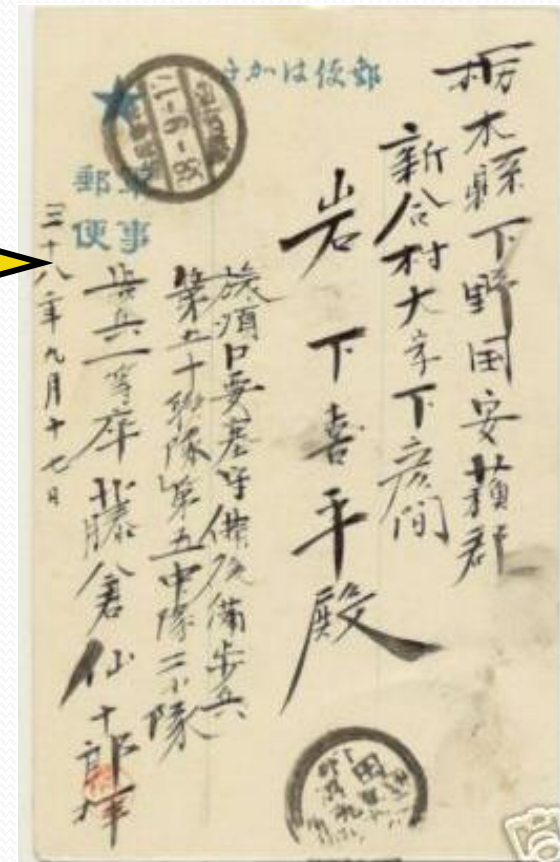 郵便はかき
軍事
郵便
38-9-17
栃木縣下野国安蘓郡
新合村大字下彦間
岩下喜平殿
旅順口要塞守備後備歩兵
第五十聯隊第五中隊二小隊
歩兵一等卒 藤倉仙十郎
三十八年九月十七日